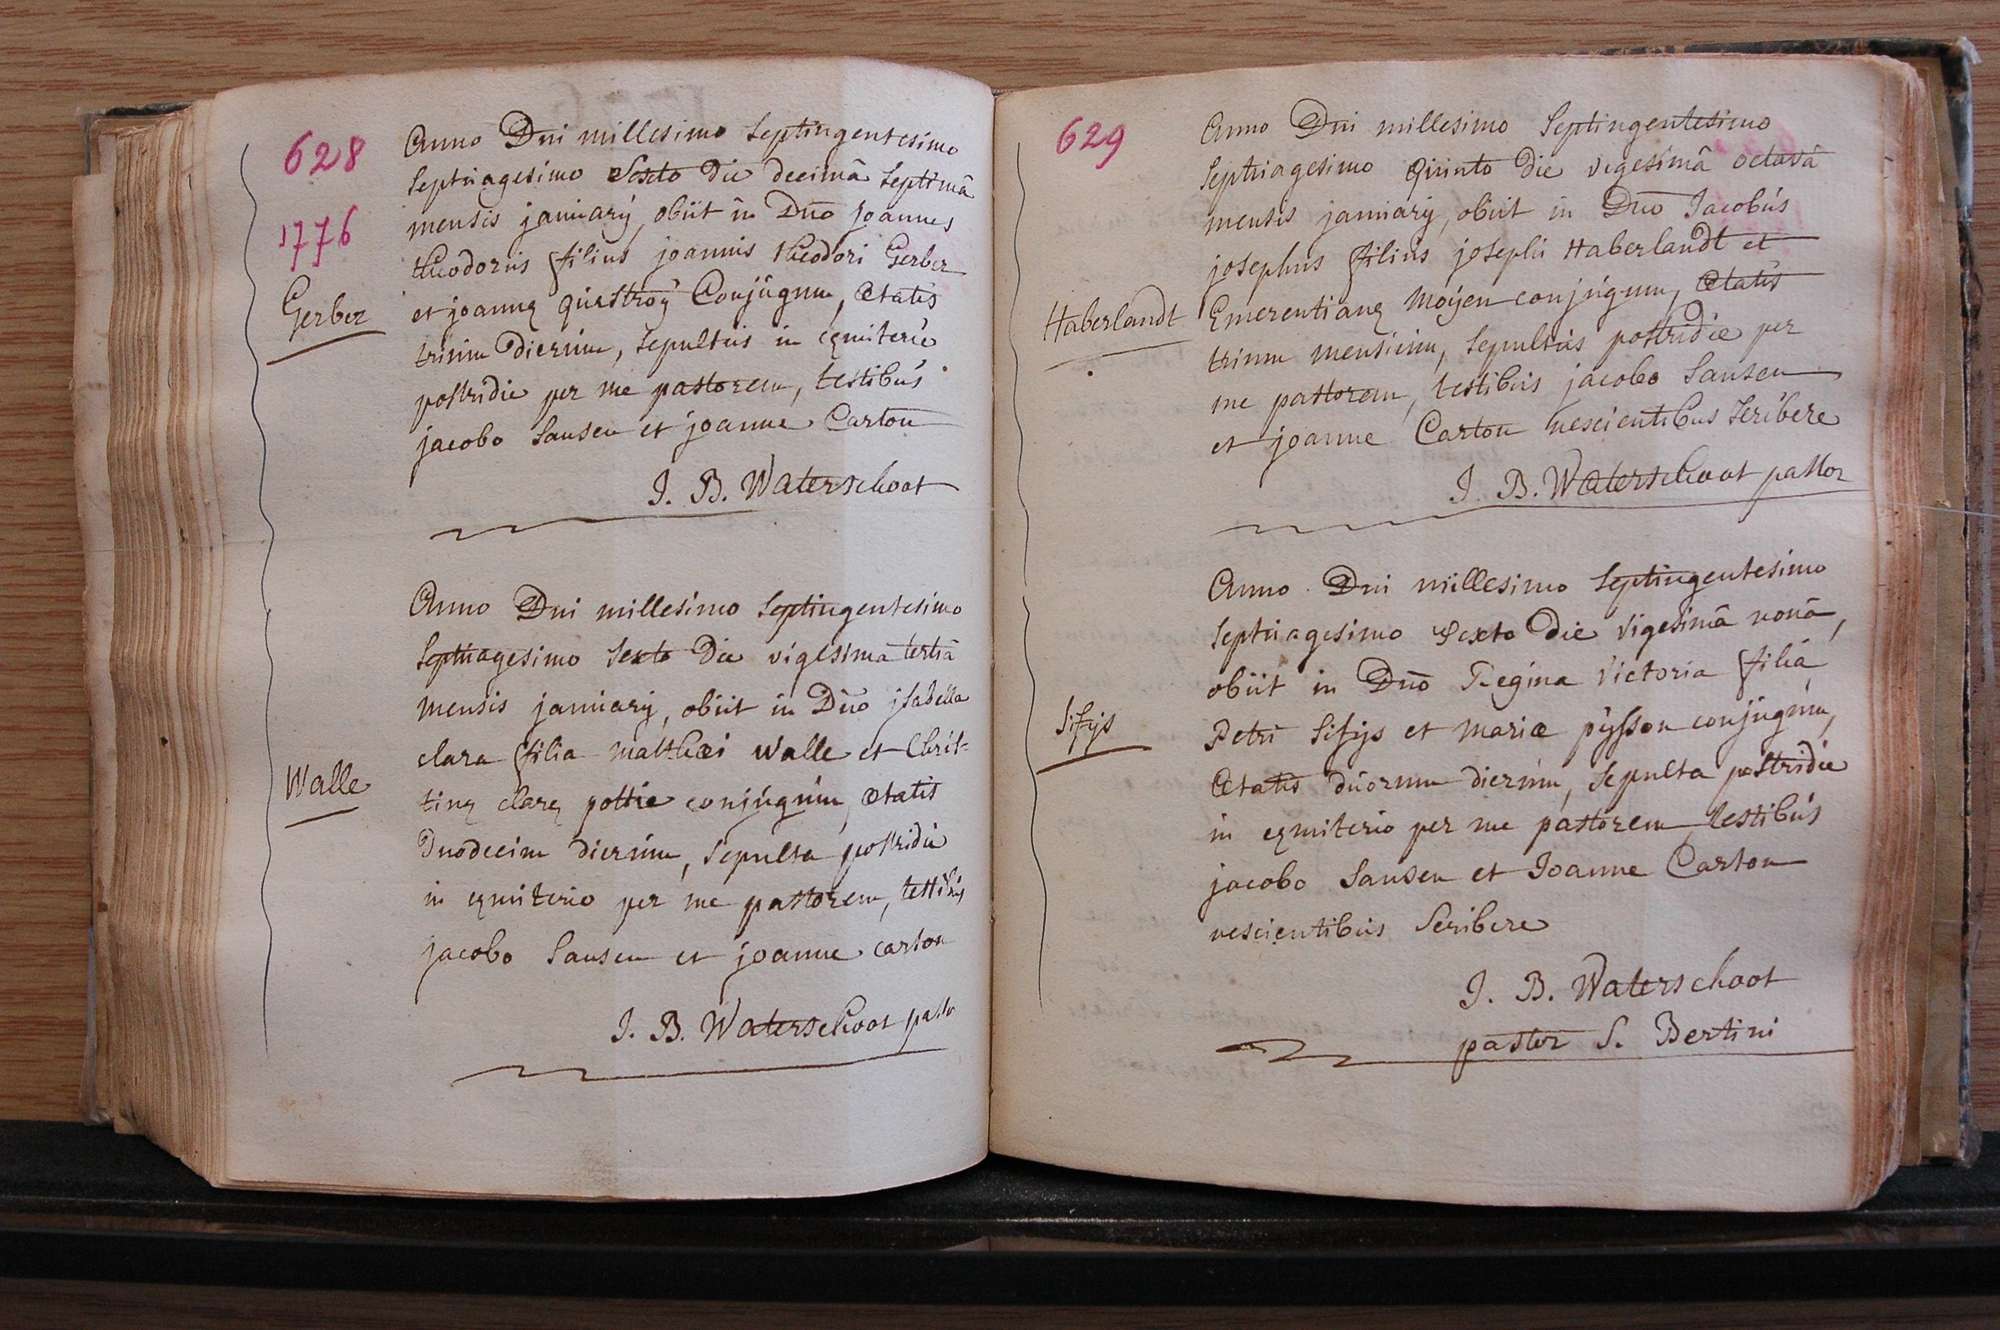 628
1776
Gerber
Anno Dni millesimo Septingentesimo
Septuagesimo Sexto die decimâ Septimâ
mensis januarÿ, obiit in Dno joannes
theodorus filius joannis theodori Gerber
et joannę quastroÿ Conjugum, ætatis
trium dierum, sepultus in cęmiterio
postridie per me pastorem, testibus
jacobo Sansen et joanne Carton
J. B. Waterschoot
Walle
Anno Dni millesimo Septingentesimo
Septuagesimo Sexto die vigesima tertiâ
mensis januarÿ, obiit in Dno jsabella
clara filia matthæi Walle et Chris-
tinę clarę pottie conjugum, ætatis
Duodecim dierum, sepulta postridie
in cęmiterio per me pastorem, testibus
jacobo Sansen et joanne carton
J. B. Waterschoot pastor
629
Haberlandt
Anno Dni millesimo Septingentesimo
Septuagesimo Quinto die vigesimâ octavâ
mensis januarÿ, obiit in Dno Jacobus
josephus filius josephi Haberlandt et
Emerentianę Moÿen conjugum, ætatis
trium mensium, sepultus postridie per
me pastorem, testibus jacobo Sansen
et joanne Carton nescientibus Scribere
J. B. Waterschoot pastor
Anno Dni millesimo Septingentesimo
Septuagesimo Sexto Die vigesimâ nonâ,
obiit in Dno Regina victoria filia
Petri Sifÿs et mariæ pÿsson conjugum,
Ætatis duorum dierum, sepulta postridie
in cęmiterio per me pastorem testibus
jacobo Sansen et Joanne Carton
nescientibus Scribere
Sifÿs
J. B. Waterschoot
pastor S. Bertini